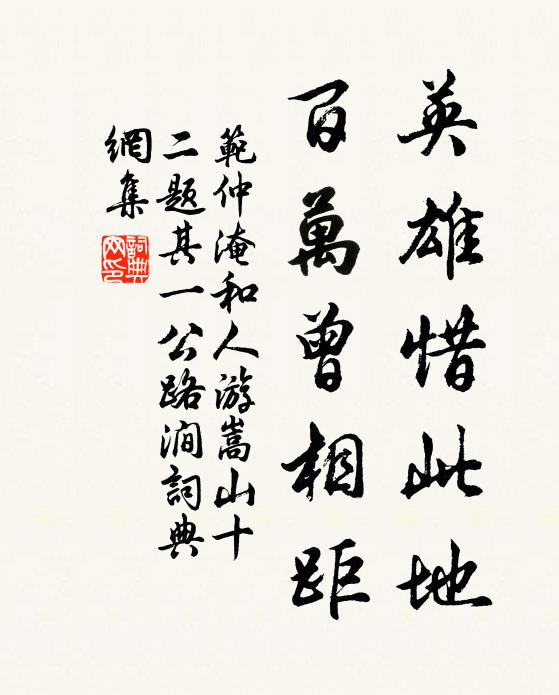 英雄惜此地
百萬曾相距
範仲淹和人游嵩山十
二题其一公路澗詞典
網集
詞典网印